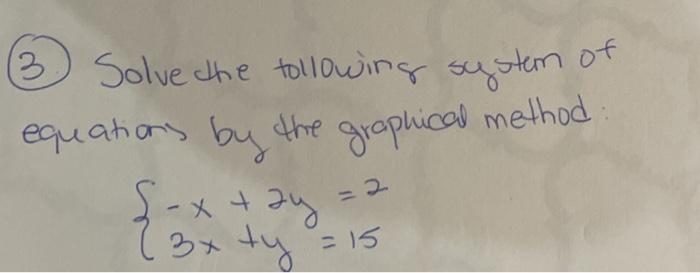 3. Solve the following system of
equations by the graphical method:
{-x + 2y = 2
{3x + y = 15